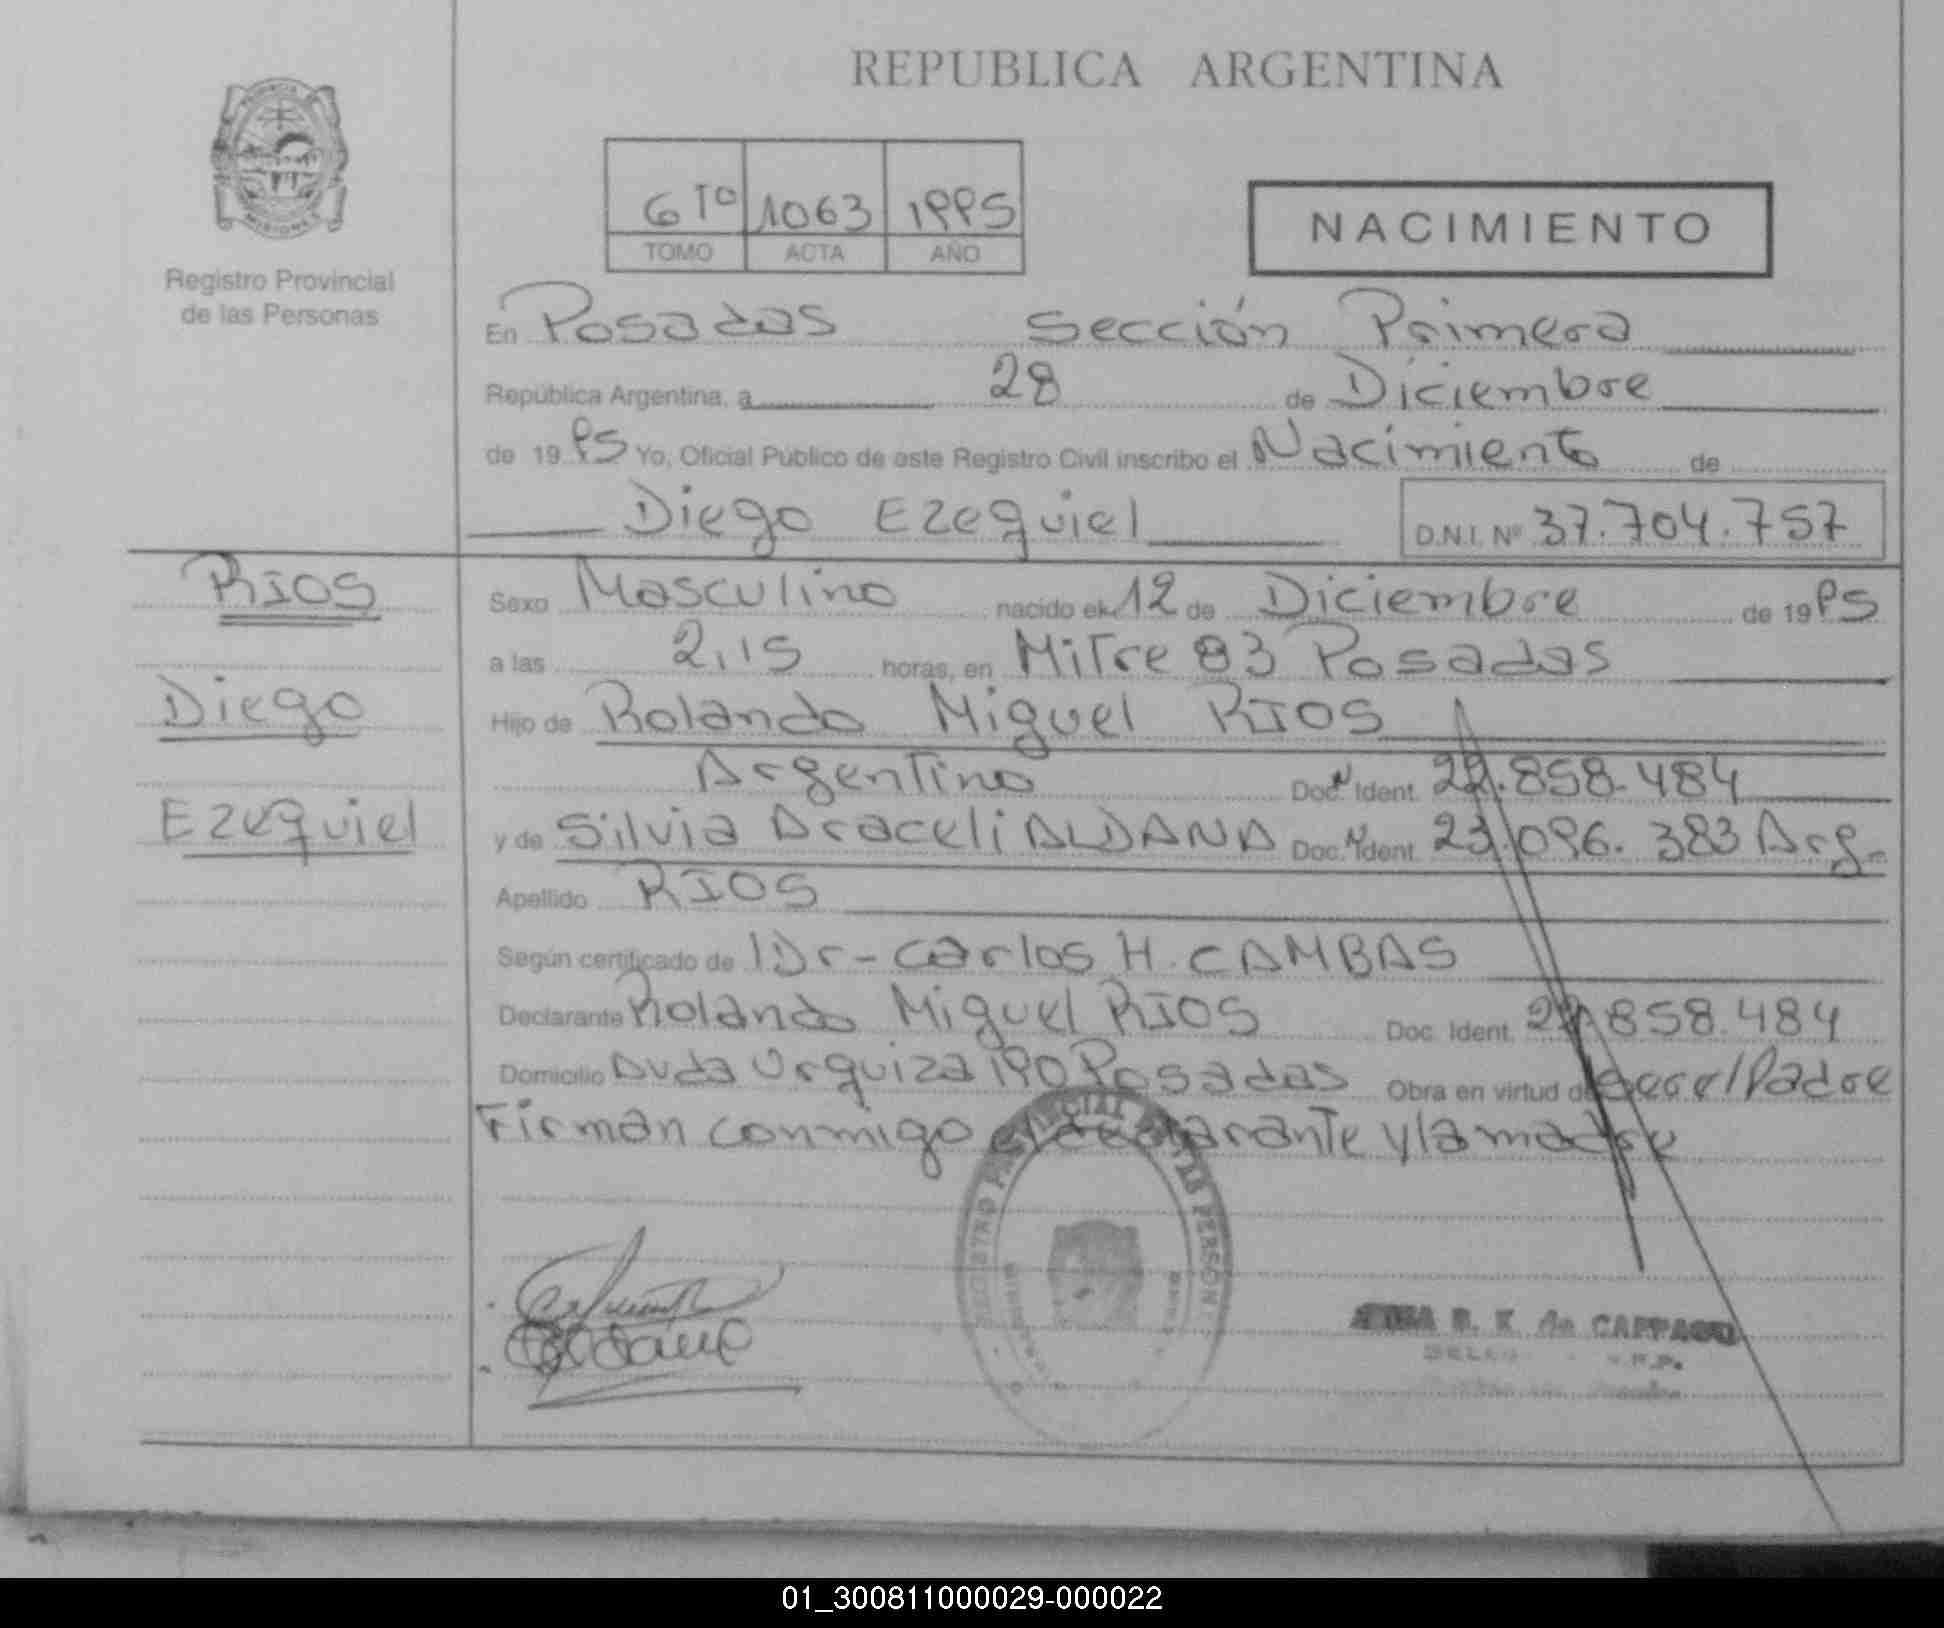 REPUBLICA ARGENTINA
6 TO 1063 1995
TOMO ACTA AÑO
NACIMIENTO
Registro Provincial
de las Personas
En Posadas Sección Primera
República Argentina, a 28 de Diciembre
de 19 95 Yo, Oficial Público de este Registro Civil inscribo el Nacimiento de
Diego Ezequiel D.N.I. Nº 37.704.757
RIOS
Sexo Masculino nacido el 12 de Diciembre de 19 95
a las 2,15 horas, en Mitre 83 Posadas
Diego
Hijo de Rolando Miguel RIOS
Argentino Doc. Ident. 22.858.484
Ezequiel
y de Silvia Araceli ALDANA Doc. Ident. 23.096.383 Arg.
Apellido RIOS
Según certificado de Dr - Carlos H. CAMBAS
Declarante Rolando Miguel RIOS Doc. Ident. 22.858.484
Domicilio Avda Urquiza 190 Posadas Obra en virtud de ser el Padre
Firman conmigo el declarante y la madre
REGISTRO PROVINCIAL DE LAS PERSONAS
R. K. de
01_300811000029-000022